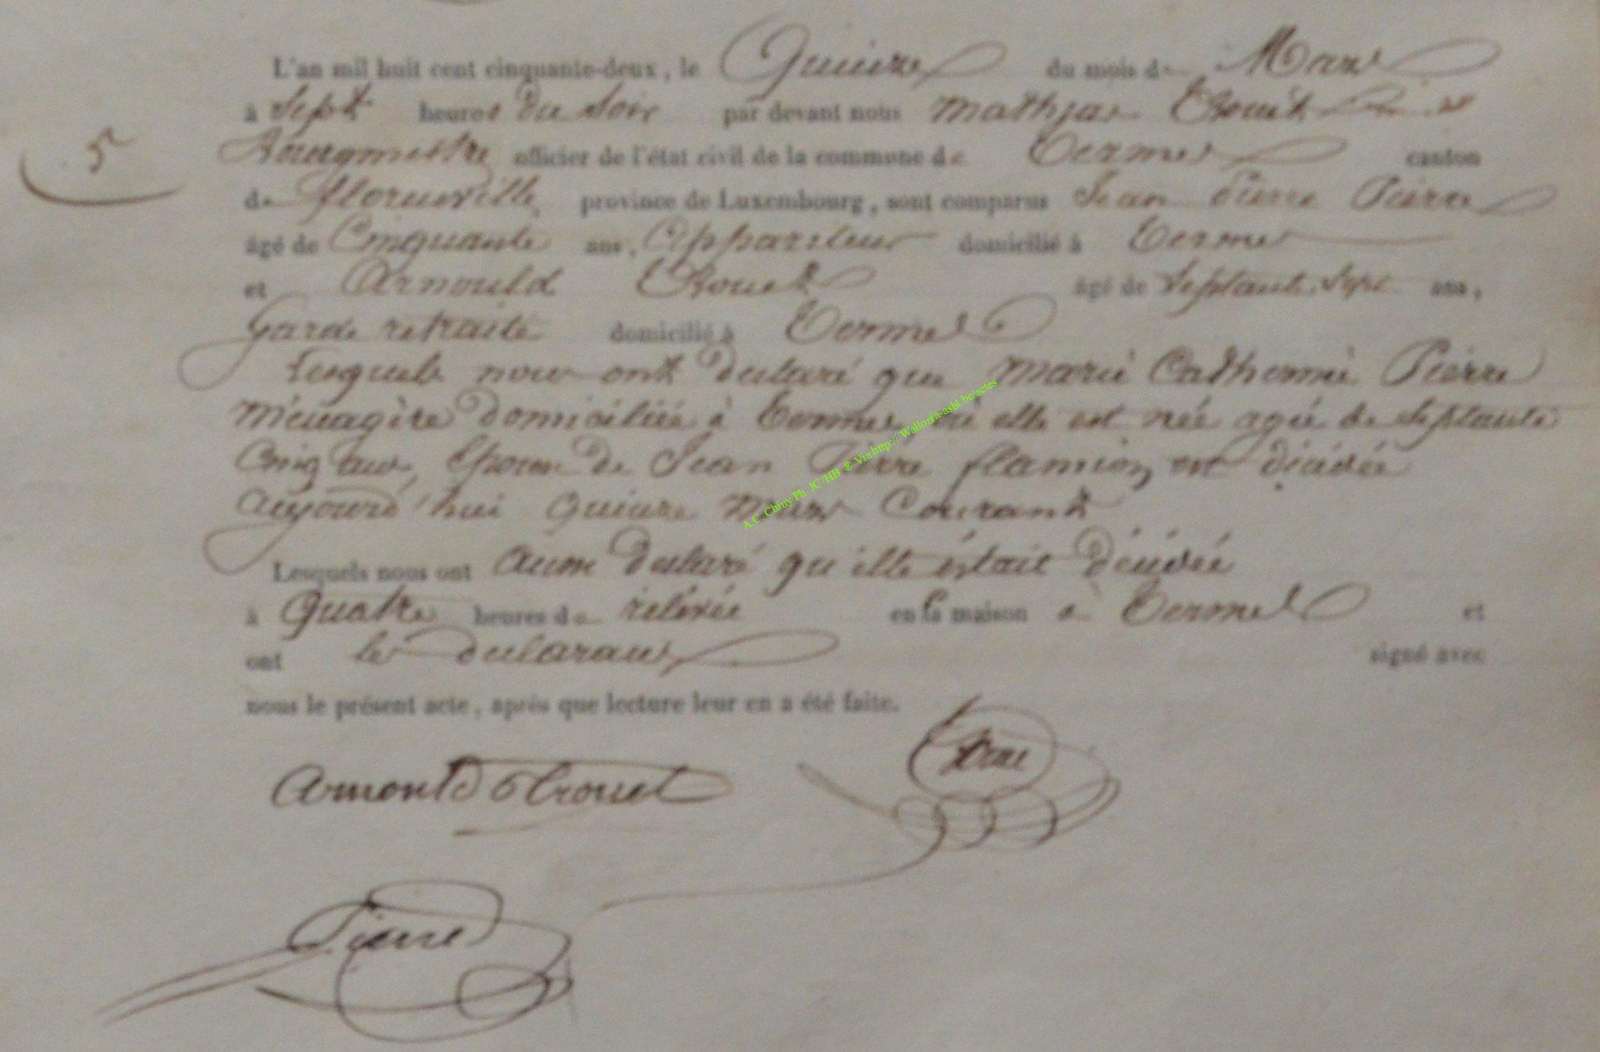 L'an mil huit cent cinquante-deux, le Quinze du mois de Mars
à Sept heures du Soir par devant nous Mathias
5
Bourgmestre officier de l'état civil de la commune de Termes canton
de florenville province de Luxembourg, sont comparus Jean Pierre Pierre
âgé de Cinquante ans, Appariteur domicilié à Termes
et Arnould age de Septante Sept ans,
Garde retraité domicilié à Termes
Lesquels nous ont déclaré que Marie Catherine Pierre
Ménagère domiciliée à Termes où elle est née agée de Septante
Cinq ans, Epouse de Jean Pierre flamion, est décédée
aujourd'hui Quinze Mars Courant
Lesquels nous ont aussi déclaré qu'elle était décédée
à Quatre heures de relevée en sa maison à Termes et
ont les déclarans signé avec
nous le présent acte, après que lecture leur en a été faite.
Arnould
Pierre
A.E. Chiny Ph. JC/HB & Via http: